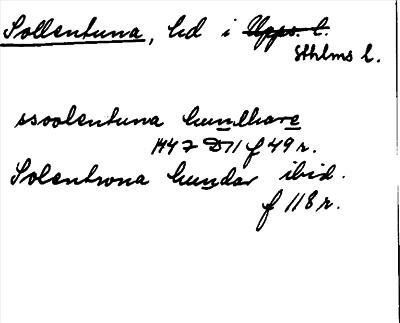 Sollentuna, hd i Upps. l.
Sthlms l.
ssoolentuna hundhare
1447 D11 f 49 r.
Solentrona hundar ibid.
f 118 r.